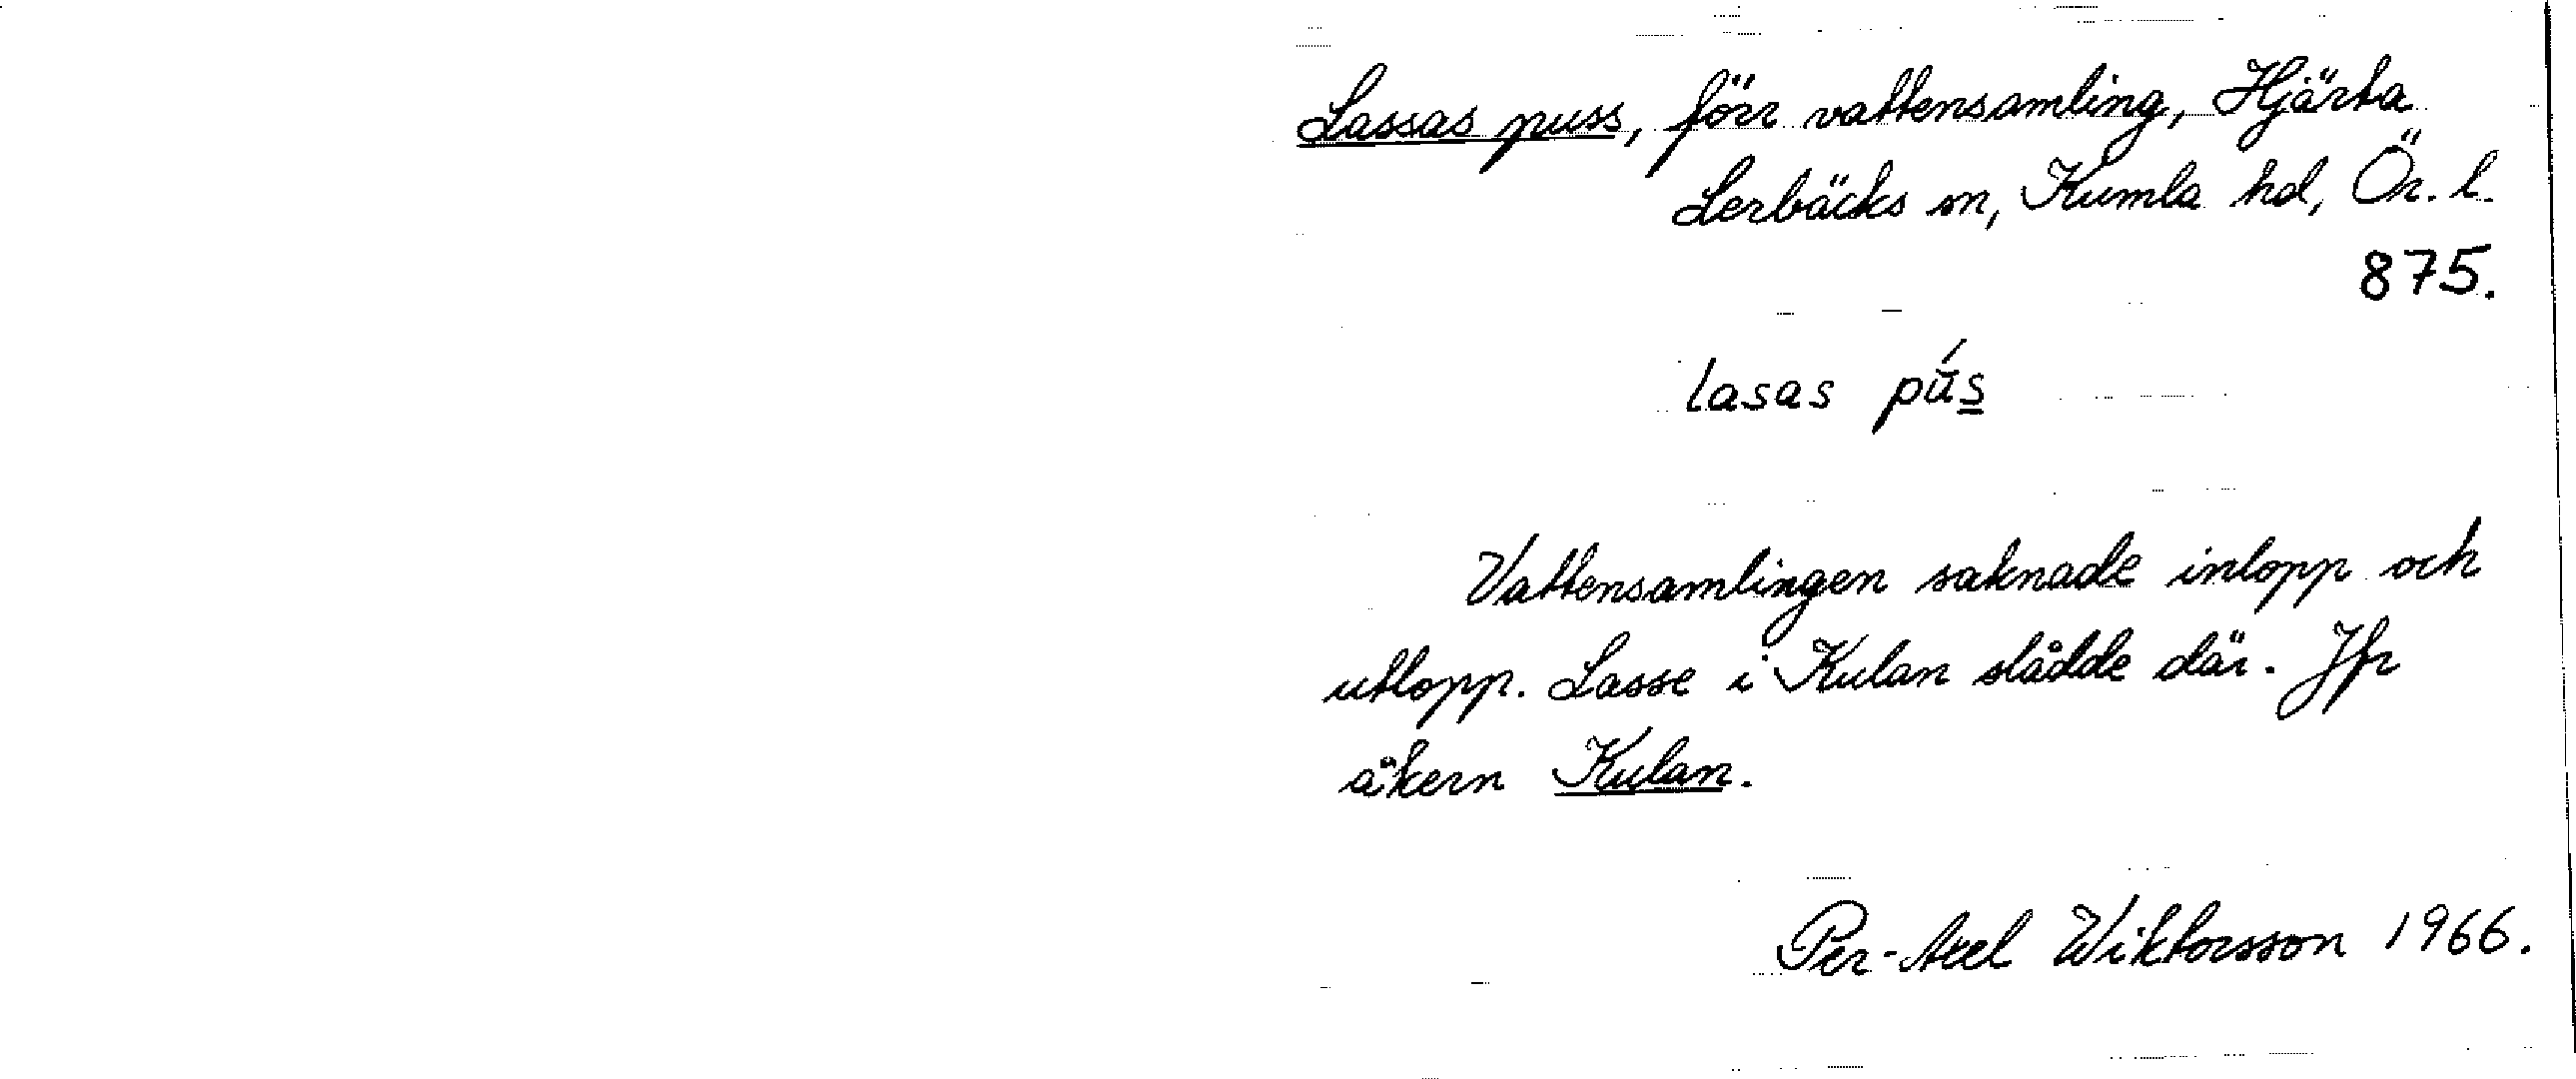 Lassas puss, förr vattensamling, Hjärta
Lerbäcks sn, Kumla hd, Ör. l.
875.
lasas pús
Vattensamlingen saknade inlopp och
utlopp. Lasse i Kulan slådde där. Jfr
åkern Kulan.
Per-Axel Wiktorsson 1966.